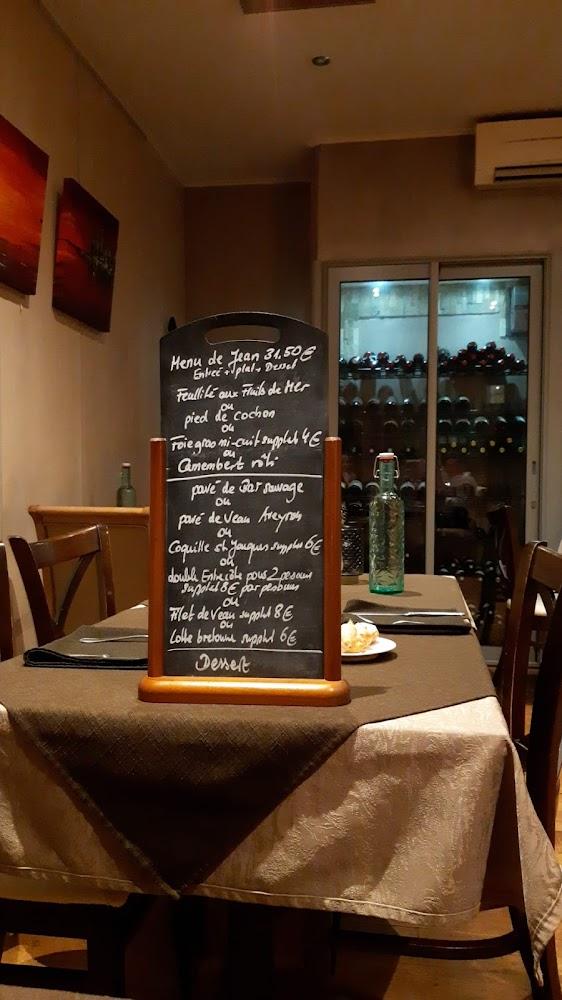 Menu de Jean 31.50€
Entrée + plat + Dessert
Feuillité aux Fruits de Mer
ou
pied de cochon
ou
Foie gras mi-cuit supplet 4€
ou
Camembert rôti
pavé de Bar sauvage
ou
pavé de Veau Aveyron
ou
Coquille St Jacques supplet 6€
ou
double Entrecôte pour 2 personnes
supplet 8€ par personne
ou
Filet de Veau supplet 8€
ou
Lotte bretonne supplet 6€
Dessert